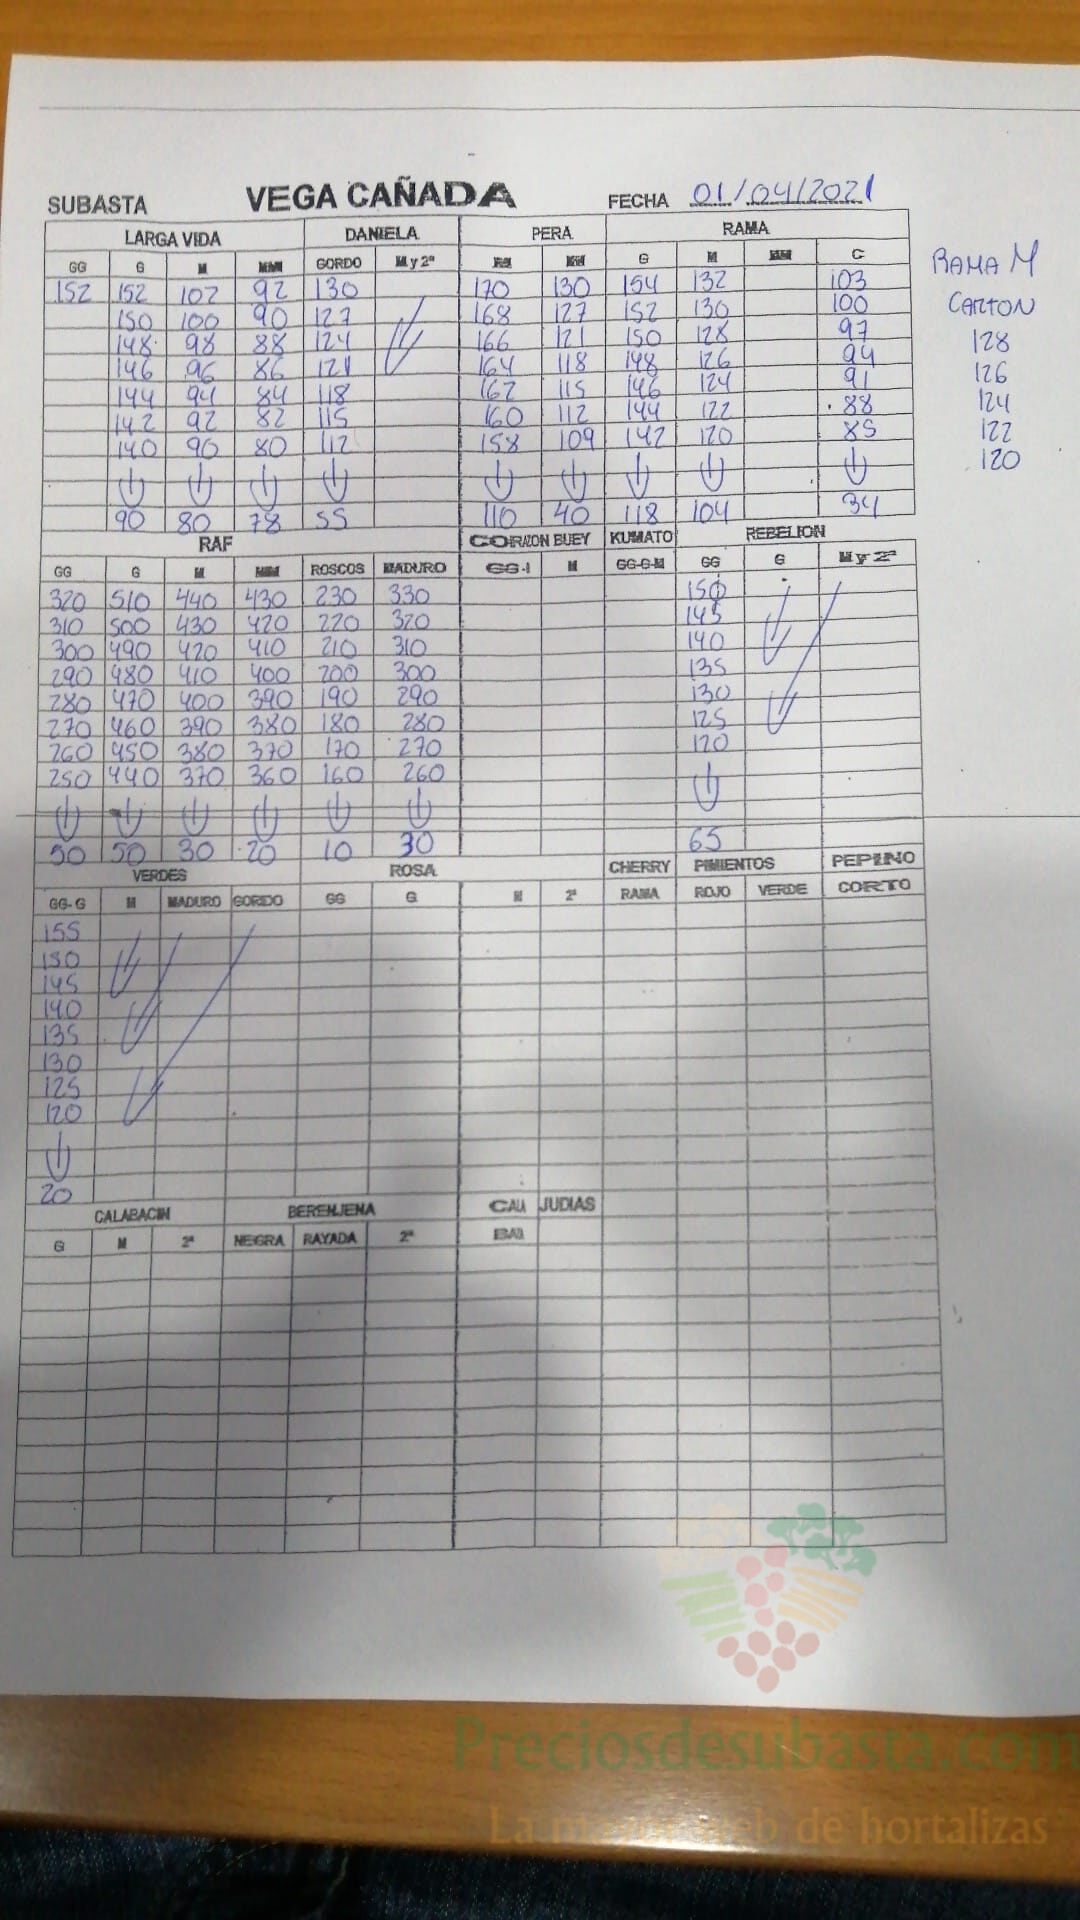 SUBASTA VEGA CAÑADA FECHA 01/04/2021
LARGA VIDA DANIELA PERA RAMA
GG G M MM GORDO M y 2ª M MM G M MM C
152 152 102 92 130 170 130 154 132 103
150 100 90 127 168 127 152 130 100
148 98 88 124 166 121 150 128 97
146 96 86 121 164 118 148 126 94
144 94 84 118 162 115 146 124 91
142 92 82 115 160 112 144 122 88
140 90 80 112 158 109 142 120 85
90 80 78 55 110 40 118 104 34
RAMA M
CARTON
128
126
124
122
120
RAF CORAZON BUEY KUMATO REBELION
GG G M MM ROSCOS MADURO GG-I M GG-G-M GG G M y 2ª
320 510 440 430 230 330 150
310 500 430 420 220 320 145
300 490 420 410 210 310 140
290 480 410 400 200 300 135
280 470 400 390 190 290 130
270 460 390 380 180 280 125
260 450 380 370 170 270 120
250 440 370 360 160 260
50 50 30 20 10 30 65
VERDES ROSA CHERRY PIMIENTOS PEPINO
GG-G M MADURO GORDO GG G M 2ª RAMA ROJO VERDE CORTO
155
150
145
140
135
130
125
120
20
CALABACIN BERENJENA JUDIAS
G M 2ª NEGRA RAYADA 2ª
Preciosdesubasta.com
La mayor web de hortalizas